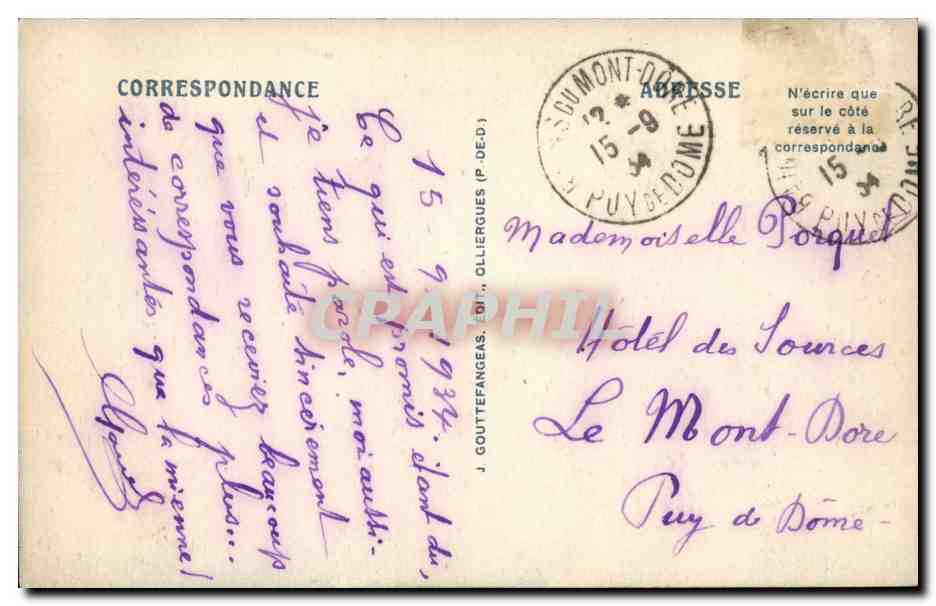 CORRESPONDANCE
15-9-1934.
Ce qui est promis étant dû,
je tiens parole, moi aussi-
et souhaite sincèrement
que vous receviez beaucoup
de correspondances plus...
intéréssantes que la mienne!
J. GOUTTEFANGEAS. EDIT., OLLIERGUES (P.-DE-D.)
ADRESSE
N'écrire que
sur le côté
réservé à la
correspondance
MONT-DORE
12 * -9
15 34
PUY DE DOME
15
34
PUY DE DOME
Mademoiselle Porquet
Hôtel des Sources
Le Mont-Dore
Puy de Dôme-
CPAPHIL